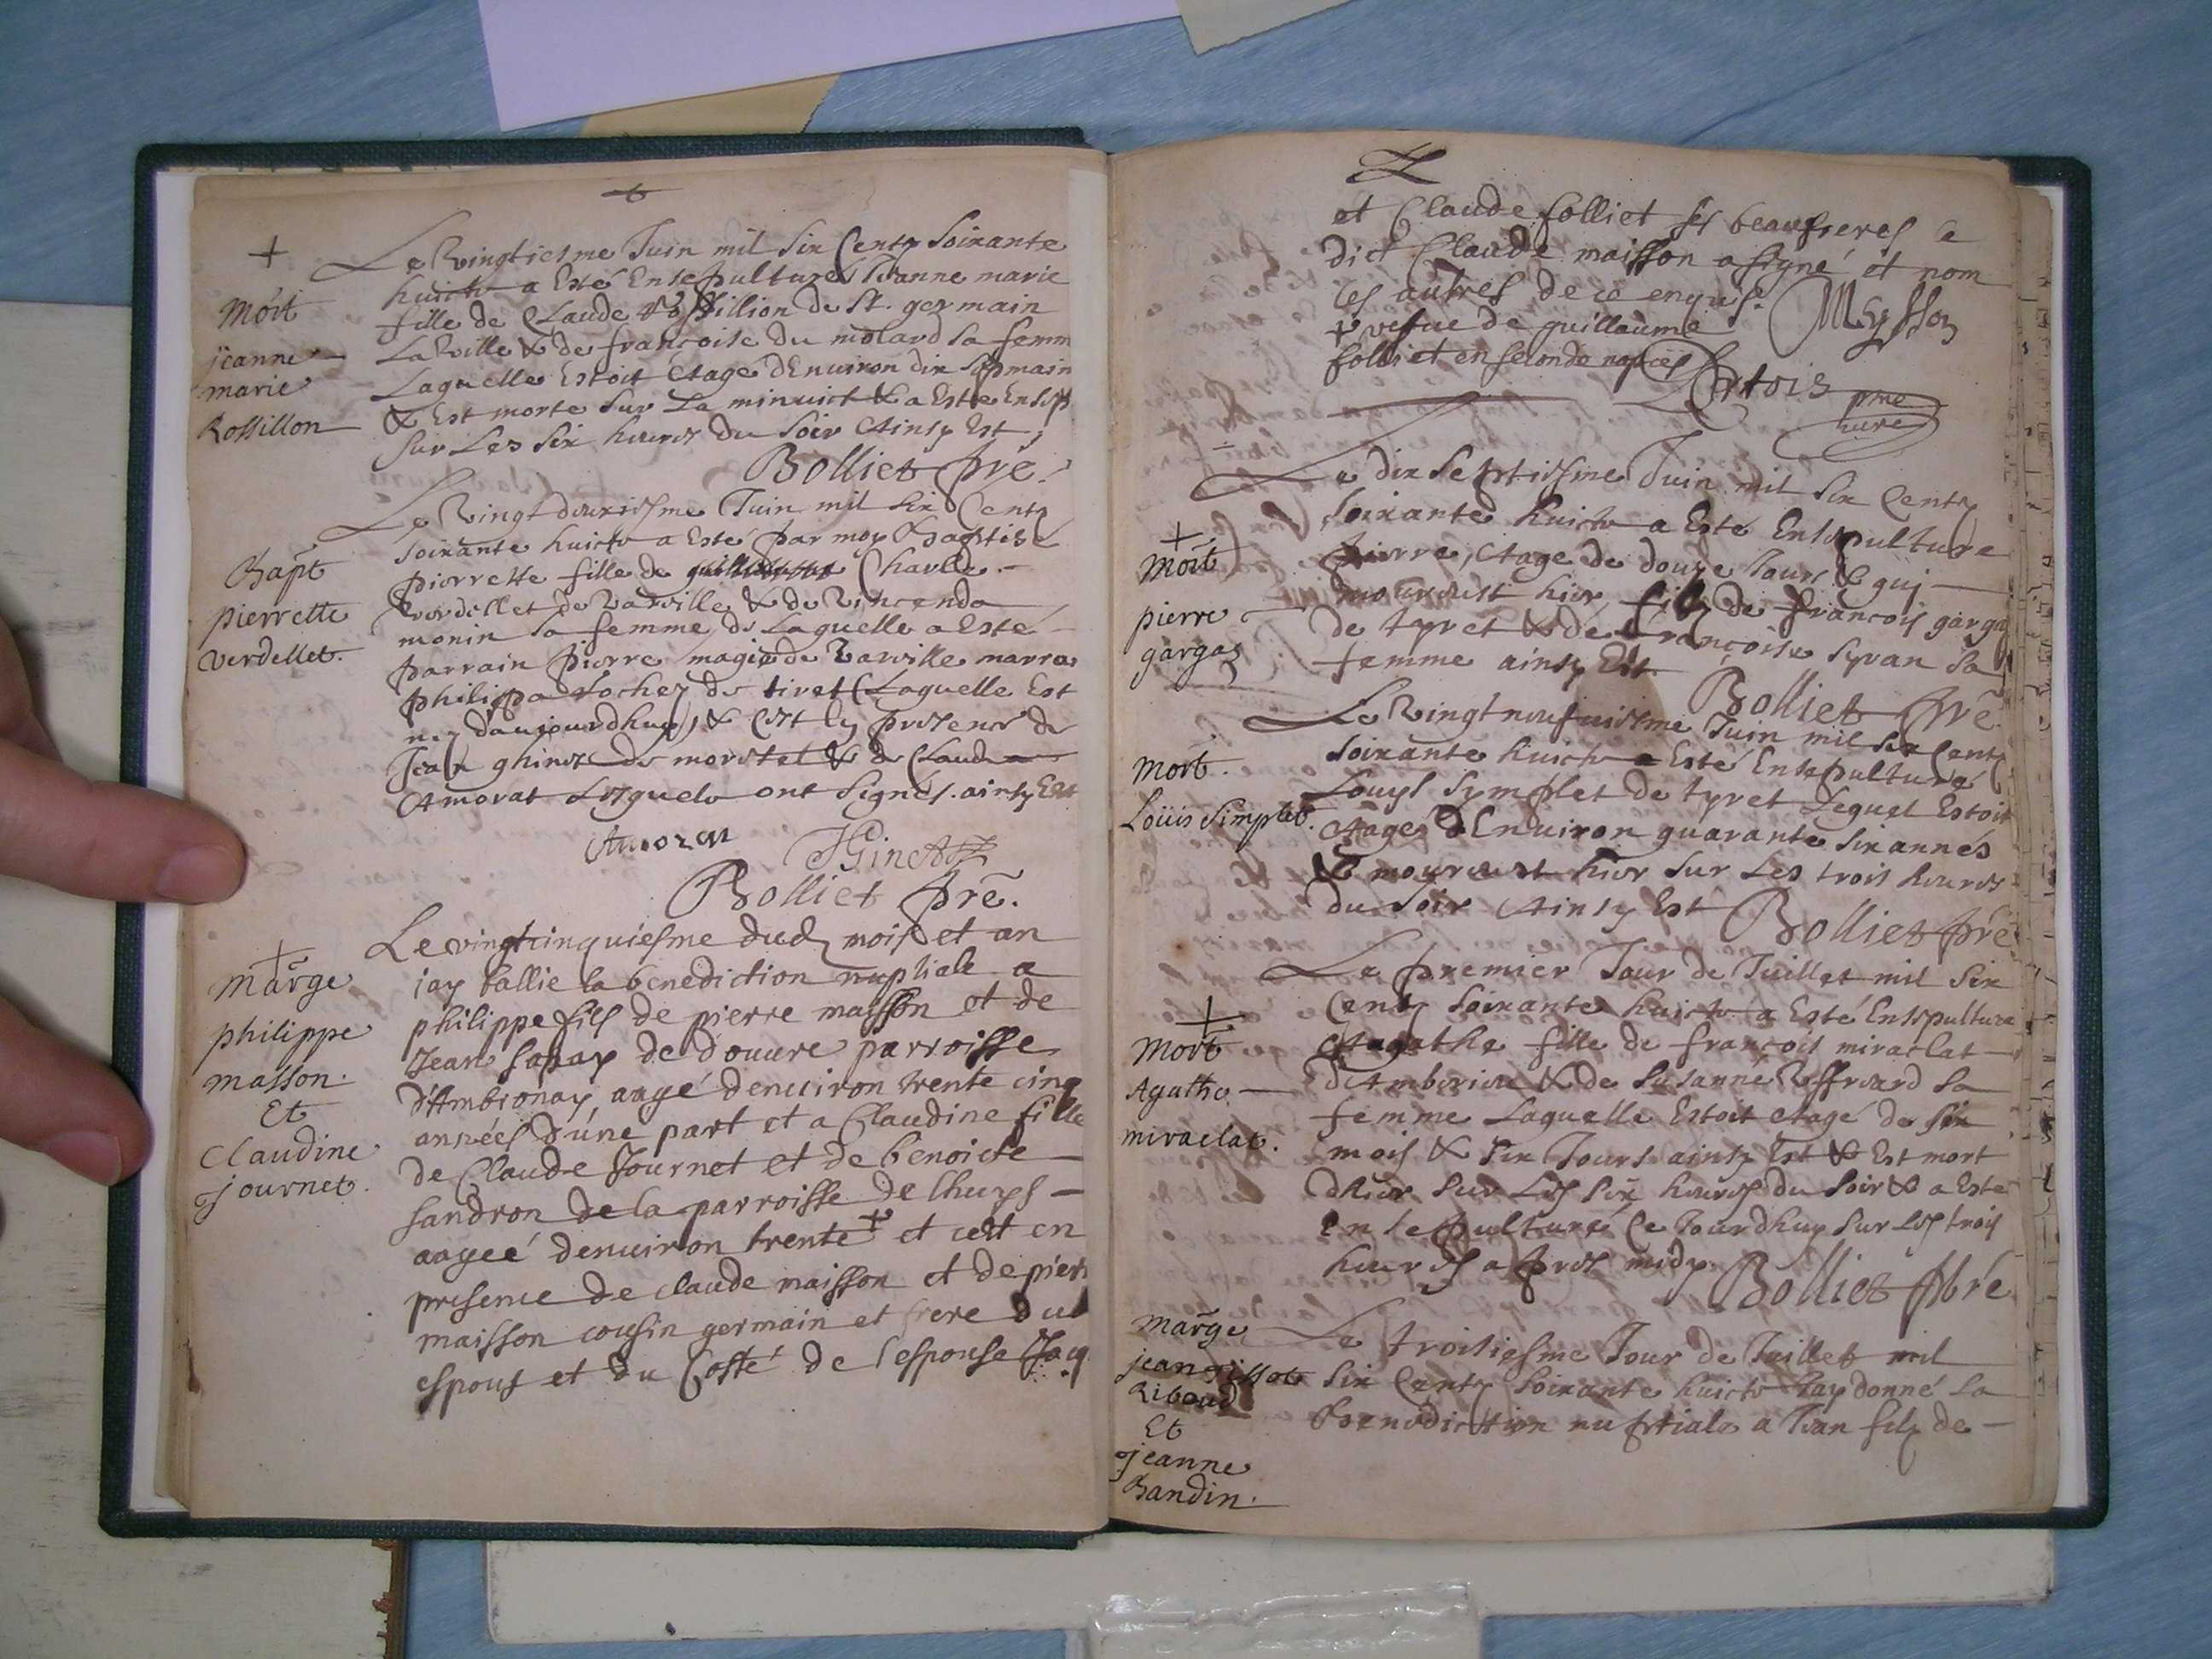 +
Mort
jeanne
marie
Rossillon
Le Vingtiesme Juin mil Six Centz Soixante
huict a Esté Ensepulturé Jeanne marie
fille de Claude Rossillion de St. germain
La Ville & de francoise du molard sa femm
Laquelle Estoit Etagé dEnuiron dix
& Est morte Sur La minuict & a Esté Ensep
Sur Les Six heures du Soir Ainsy Est
Bolliet pre.
Bapt
pierrette
verdellet.
Le Vingt deuxiesme Juin mil Six Centz
soixante huict a Esté par moy Baptisé
pierrette fille de Charle
Verdellet de Varuille & de Vincende
monin sa femme de Laquelle a Esté
parrain pierre magi de Varuille marra
philippa Lochez de tiret Laquelle Est
ney daujourdhuy, & Cest En presence de
Jean ghinet de morestel & de Claude
Amorat Lesquels ont Signés. ainsy Est
Amorat
Bolliet prē.
+
Marge
philippe
masson.
Et
Claudine
journet.
Le vingtcinquiesme dud mois et an
jay ballie la benediction nuptiale a
philippe fils de pierre masson et de
Jeane sapay de douure parroisse
d'Ambronay aagé denuiron trente cinq
années d'une part et a Claudine fille
de Claude Journet et de benoicte
sandron de la parroisse de lhuys
aageé denuiron trente et cest en
presence de claude maisson et de pierr
maisson cousin germain et frere dud
espous et du Costé de l'espouse Jaq
et Claude folliet ses beaufreres le
dict Claude maisson a signé et nom
les autres de ce enquis. Meysson
vefue de guillaume
folliet en seconde nopces
Cortois pre
cure
+
Mort
pierre
gargaz
Le dix Septiesme Juin mil Six Centz
Soixante huict a Esté Ensepulture
pierre, Etage de douze Jours & qui
mourust hier filz de francois garga
de tyret & de francoise Syvan sa
femme ainsy Est.
Bolliet prē
Mort.
Loüis Simplet.
Le Vingt neufuiesme Juin mil Six Centz
soixante huict a Esté Ensepulturé
Louys Symplet de tyret Lequel Estoit
Etagé dEnuiron quarante Six annés
& mourust hier Sur Les trois heures
du Soir Ainsy Est Bolliet prē
+
Mort
Agathe
miraclat.
Le premier Jour de Juillet mil Six
Centz Soixante huict a Esté Ensepulture
Agathe fille de francois miraclat
dAmberieu & de Susanne Ruffard sa
femme Laquelle Estoit etagé de Six
mois & Six Jours ainsy Est & Est mort
dhier Sur Les Six heures du Soir & a Esté
Ensepulturé Ce Jourdhuy Sur Les trois
heures apres midy. Bolliet pbre
Marge
jean Tissot
Riboud
Et
jeanne
Bandin.
Le troisiesme Jour de Juillet mil
Six Centz Soixante huict Jay donné La
Benediction nuptiale a Jean filz de